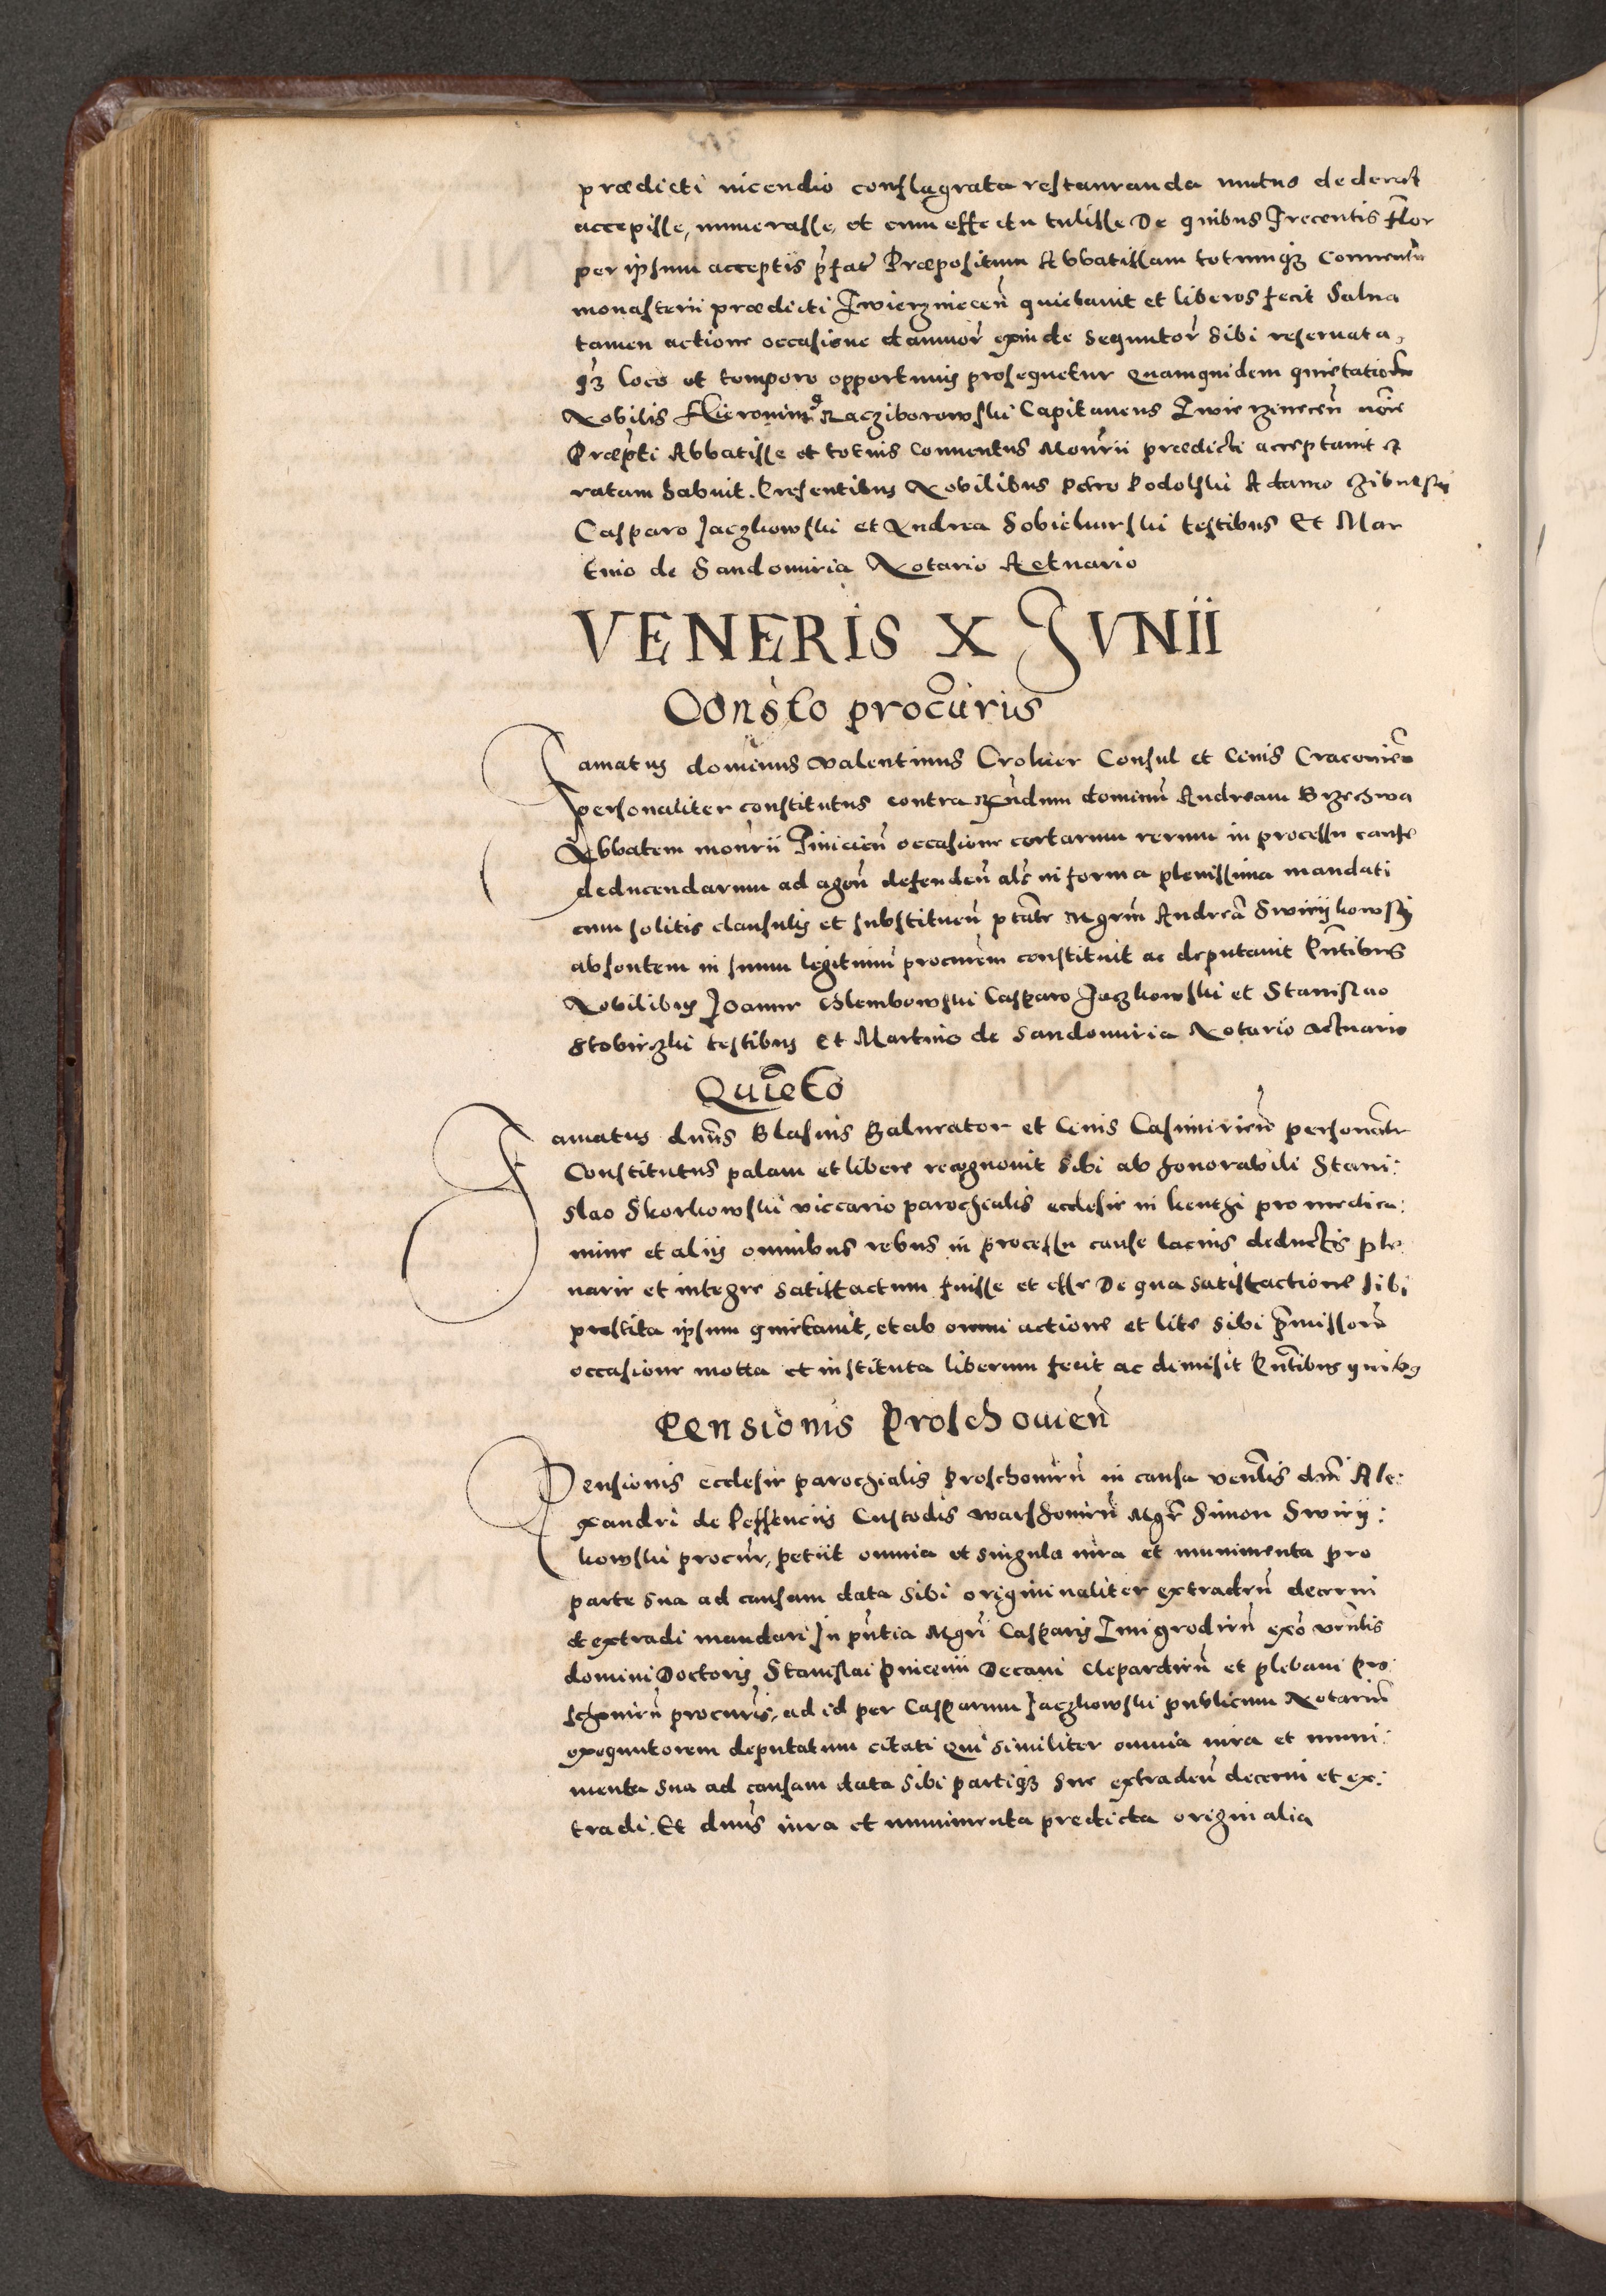 prædicti incendio conflagrata restauranda mutuo dederat
accepisse, numerasse, et cum effectu tulisse De quibus Trecentis Flor̄
per ipsum acceptis p̄fat̄ Præpositum Abbatissam totumq₃ Conventū
monasterii prædicti Zwierzniecen̄ quietavit et liberos fecit Salva
tamen actione occasione damnor̄ exinde sequutor̄ sibi reservata,
q̄₃ loco et tempore opportunis prosequetur Quamquidem quietationē
Nobilis Hieronimus Racziborowski Capitaneus Zwierzynecen̄ nōie
Præpti Abbatisse et totius Conventus Mon̄rii prædicti acceptavit et
ratam habuit. Presentibus Nobilibus Petro Podolski Adamo
Casparo Jaczkowski et Andrea Sobiekurski testibus Et Mar
tino de Sandomiria Notario Actuario
VENERIS X JVNII
Cons̄to procūris
Famatus dominus Valentinus Croker Consul et Civis Cracovien̄
personaliter constitutus contra R̄ndum dominū Andream Brzechwa
Abbatem mon̄rii Tinicien̄ occasione certarum rerum in processu cause
deducendarum ad agen̄ defenden̄ al̄s in forma plenissima mandati
cum solitis clausulis et substituen̄ p̄tāte Mgrm̄ Andreā Swirijkowskij
absentem in suum legitimū procurēm constituit ac deputavit P̄ntibus
Nobilibus Joanne Glembowski Casparo Jaczkowski et Stanislao
Stobieczki testibus Et Martino de Sandomiria Notario Actuario
Quiēto
Famatus dn̄us Blasius Balneator et Civis Casimirien̄ personālr
Constitutus palam et libere recognovit sibi ab honorabili Stani:
slao Skorkowski viccario parochialis ecclesie in Kenthi pro medica:
mine et aliis omnibus rebus in processu cause lacius deductis ple
narie et integre satisfactum fuisse et esse De qua satisfactione sibi
prestita ipsum quietavit, et ab omni actione et lite sibi p̄missorū
occasione motta et instituta liberum fecit ac dimisit P̄ntibus quibus
Pensionis Proschovien̄
Pensionis ecclesie parochialis Proschovien̄ in causa ven̄lis dm̄i Ale:
xandri de Pessenciis Custodis Warschovien̄ Mgr̄ Simon Swirij:
kowski procūr, petiit omnia et singula iura et munimenta pro
parte sua ad causam data sibi originaliter extraden̄ decerni
et extradi mandari In p̄ntia Mgr̄i Casparis Zmigrodien̄ exo ven̄lis
domini Doctoris Stanislai Picenii Decani Clepardien̄ et plebani Pro:
schovien̄ procur̄is, ad id per Casparum Jaczkowski publicum Notariū
exequutorem deputatum citati Qui similiter omnia iura et muni:
menta sua ad causam data sibi partiq₃ sue extraden̄ decerni et ex:
tradi. Et dn̄us iura et munimenta predicta originalia